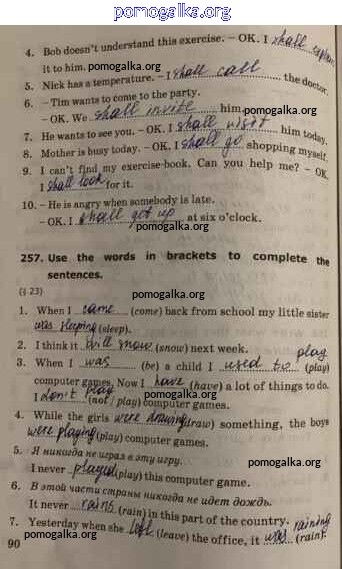 pomogalka.org
4. Bob doesn't understand this exercise. – OK. I shall explain
it to him. pomogalka.org
5. Nick has a temperature. – I shall call the doctor.
6. – Tim wants to come to the party.
– OK. We shall invite him. pomogalka.org
7. He wants to see you. – OK. I shall visit him today.
8. Mother is busy today. – OK. I shall go shopping myself.
9. I can't find my exercise-book. Can you help me? – OK.
I shall look for it. pomogalka.org
10. – He is angry when somebody is late.
– OK. I shall get up at six o'clock.
pomogalka.org
257. Use the words in brackets to complete the
sentences.
(§ 23) pomogalka.org
1. When I came (come) back from school my little sister
was sleeping (sleep). pomogalka.org
2. I think it will snow (snow) next week. play
3. When I was (be) a child I used to (play)
computer games. Now I have (have) a lot of things to do.
I don't play (not / play) computer games.
4. While the girls were drawing (draw) something, the boys
were playing (play) computer games. pomogalka.org
5. Я никогда не играл в эту игру.
I never played (play) this computer game. pomogalka.org
6. В этой части страны никогда не идет дождь.
It never rains (rain) in this part of the country. pomogalka.org
7. Yesterday when she left (leave) the office, it was raining (rain).
90 pomogalka.org pomogalka.org